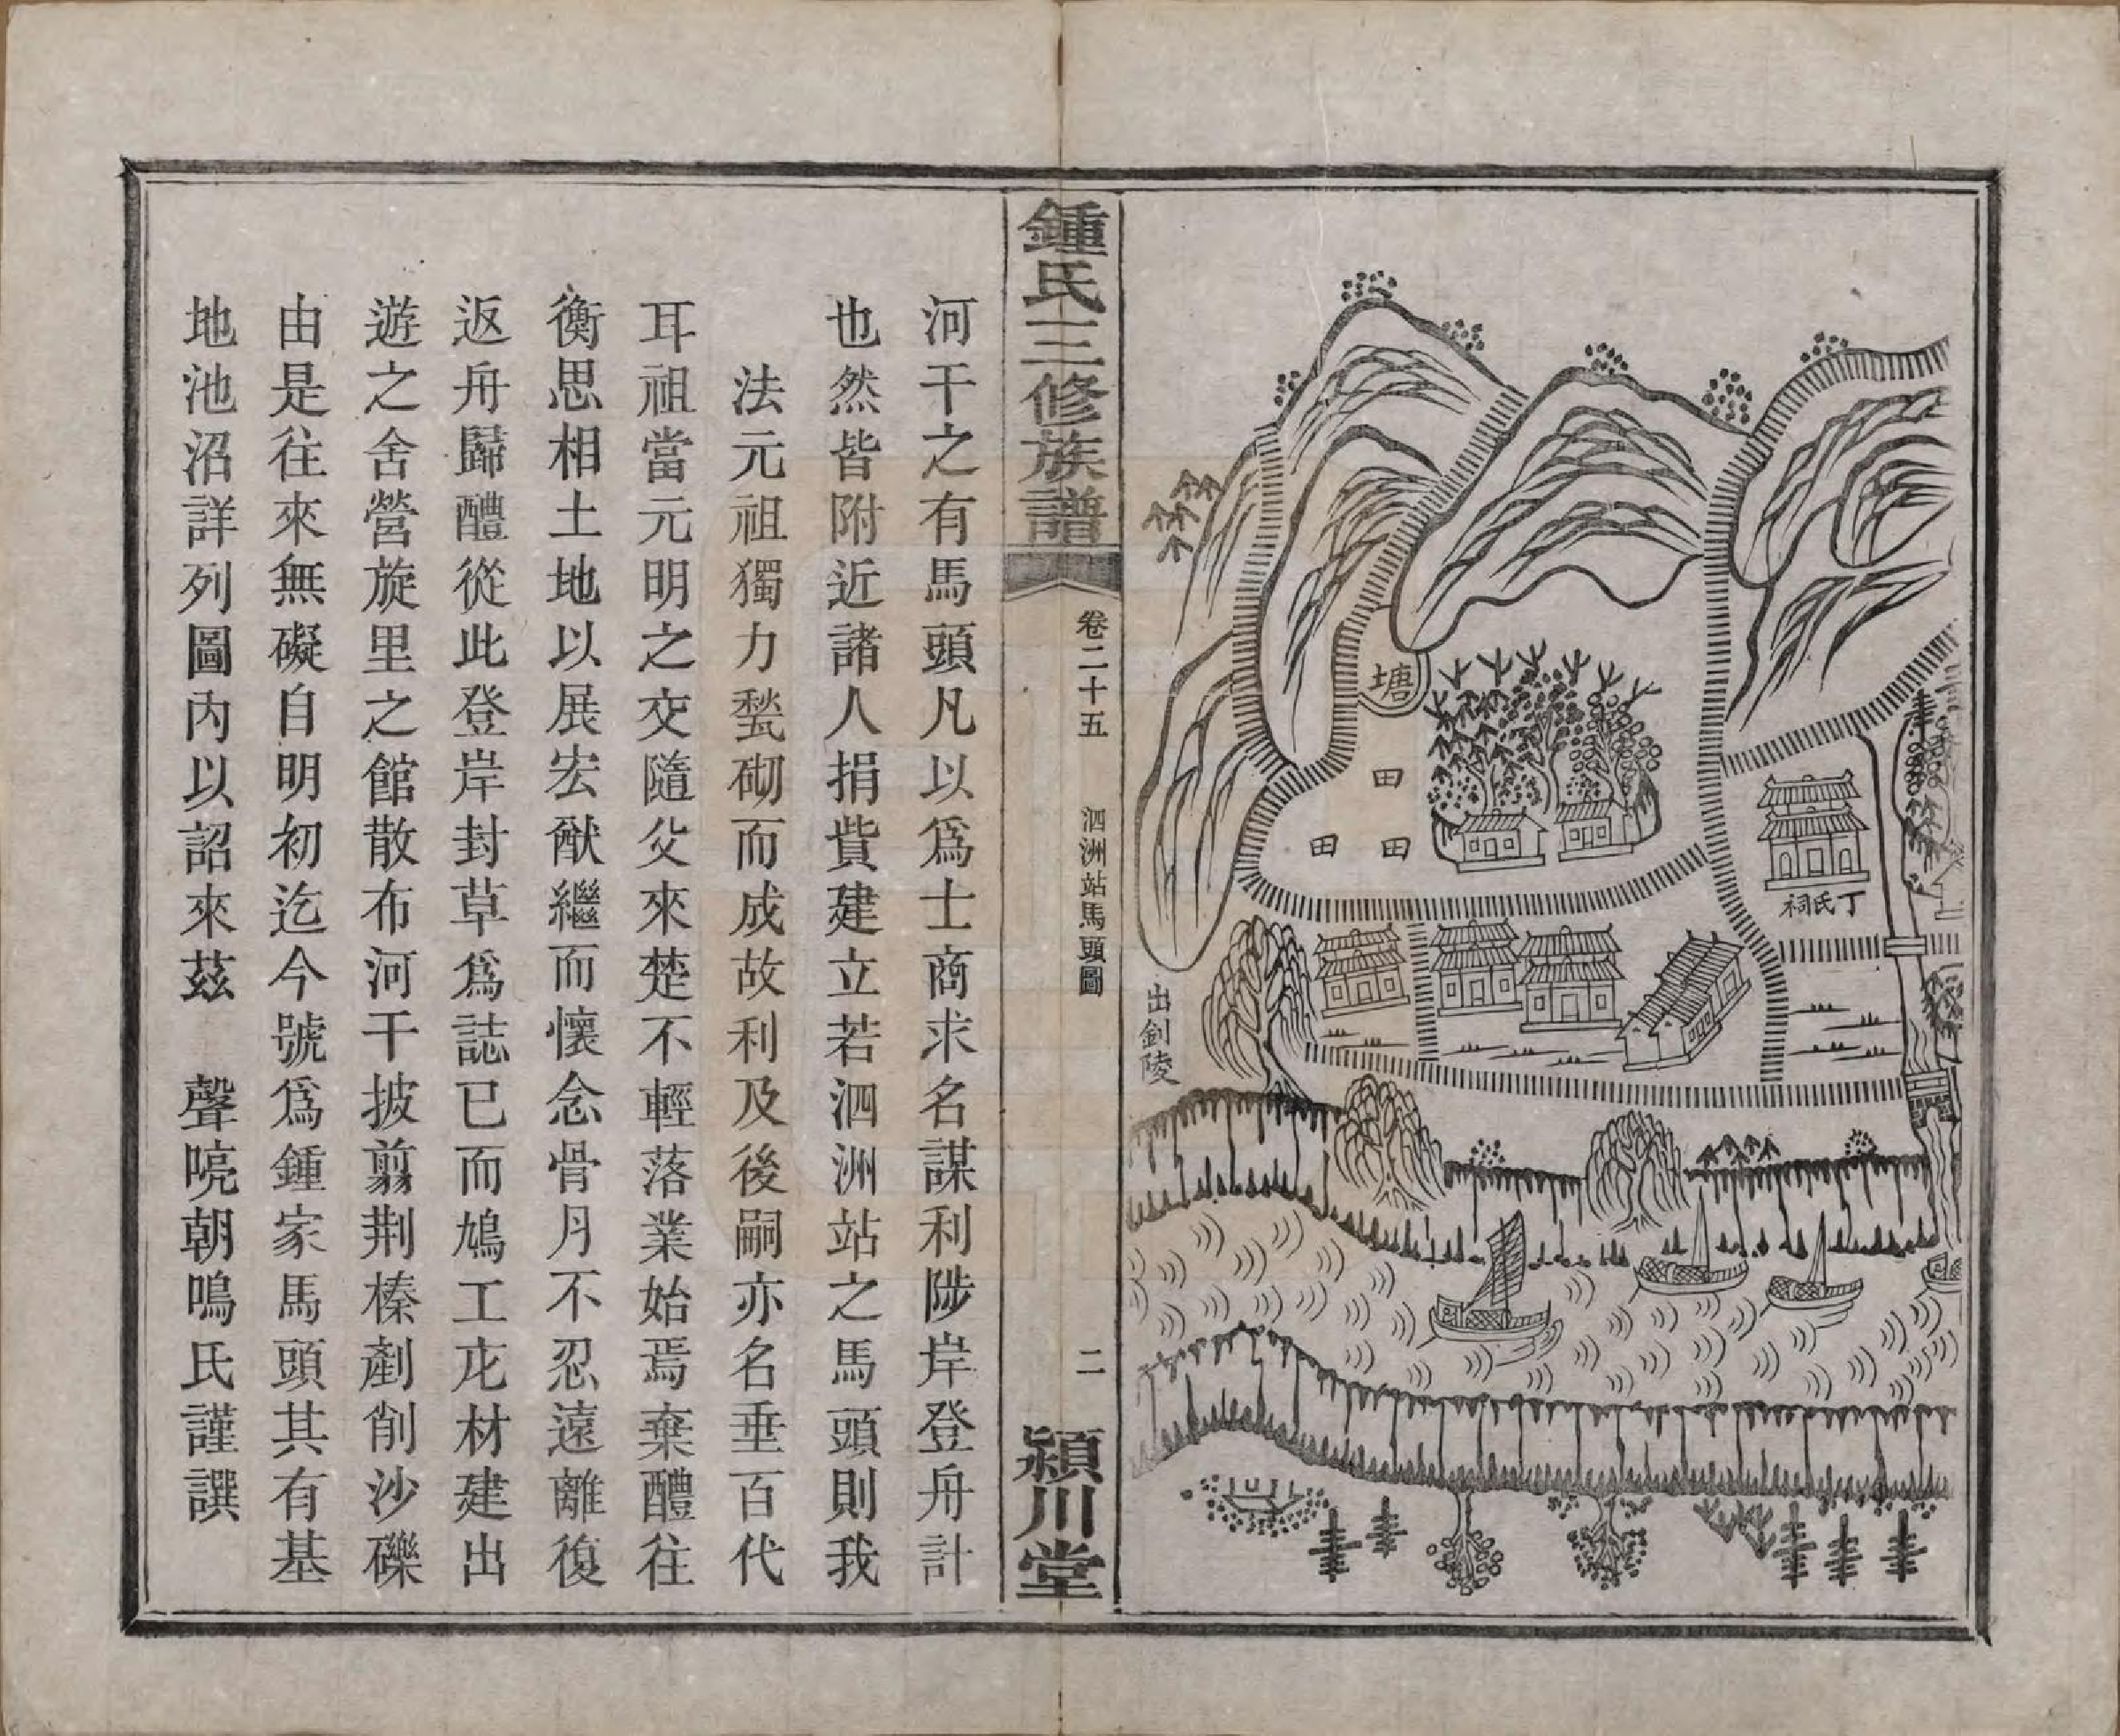 塘
田
田
田
丁氏祠
出釗陵
鍾氏三修族譜
卷二十五
泗洲站馬頭圖
二
潁川堂
河干之有馬頭凡以爲士商求名謀利陟岸登舟計
也然皆附近諸人捐貲建立若泗洲站之馬頭則我
法元祖獨力甃砌而成故利及後嗣亦名垂百代
耳祖當元明之交隨父來楚不輕落業始焉棄醴往
衡思相土地以展宏猷繼而懷念骨月不忍遠離復
返舟歸醴從此登岸封草爲誌已而鳩工庀材建出
遊之舍營旋里之館散布河干披翦荆榛剷削沙礫
由是往來無礙自明初迄今號爲鍾家馬頭其有基
地池沼詳列圖內以詔來茲　聲喨朝鳴氏謹譔